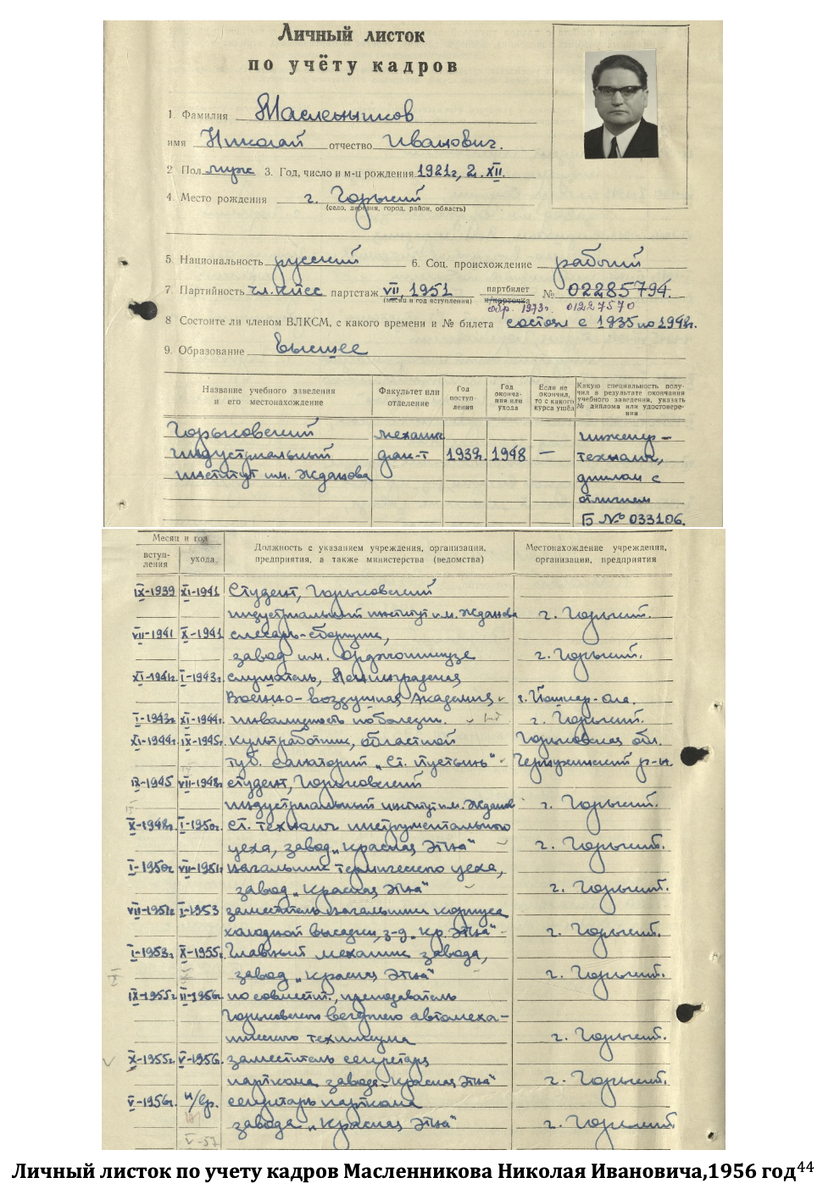 Личный листок
по учёту кадров
1. Фамилия Масленников
имя Николай отчество Иванович.
2 Пол муж 3. Год, число и м-ц рождения 1921г, 2. XII.
4. Место рождения г. Горький
(село, деревня, город, район, область)
5. Национальность русский 6. Соц. происхождение рабочий
7. Партийность чл. КПСС партстаж VII 1951 партбилет № 02285794.
(месяц и год вступления) к/карточка
обр. 1973г. 01227570
8 Состоите ли членом ВЛКСМ, с какого времени и № билета состоял с 1935 по 1948г.
9. Образование высшее
Название учебного заведения и его местонахождение
Факультет или отделение
Год поступления
Год окончания или ухода
Если не окончил, то с какого курса ушёл
Какую специальность получил в результате окончания учебного заведения, указать № диплома или удостоверения
Горьковский механич. инженер-
индустриальный фак-т 1939г. 1948 — техник,
институт им. Жданова диплом с
отличием
Б № 033106.
Месяц и год
вступления ухода
Должность с указанием учреждения, организации, предприятия, а также министерства (ведомства)
Местонахождение учреждения, организации, предприятия
IX-1939 XI-1941 Студент, Горьковский
индустриальный институт им. Жданова г. Горький.
VII-1941 X-1941 слесарь-сборщик,
завод им. Орджоникидзе г. Горький.
XI-1941г. I-1943г. слушатель, Ленинградская
Военно-воздушная Академия г. Йошкар-Ола.
I-1943г. XI-1944г. инвалидность по болезни. г. Горький.
XI-1944г. IX-1945г. культработник, областной Горьковская обл.
туб. санаторий "Ст. Пустынь" Чернухинский р-н.
IX-1945 VII-1948г. студент, Горьковский
индустриальный институт им. Жданова г. Горький.
X-1948г. I-1950г. ст. техник инструментального
цеха, завод "Красная Этна" г. Горький.
I-1950г. VII-1951г. начальник термического цеха,
завод "Красная Этна" г. Горький.
VII-1951г. I-1953 заместитель начальника корпуса
холодной высадки, з-д "Кр. Этна" г. Горький.
I-1953г. X-1955г. Главный механик завода,
завод "Красная Этна" г. Горький.
IX-1955г. II-1956г. по совместит., преподаватель
Горьковского вечернего автомеха-
нического техникума г. Горький.
X-1955г. V-1956. заместитель секретаря
парткома завода "Красная Этна" г. Горький.
V-1956г. н/вр. секретарь парткома
завода "Красная Этна" г. Горький
V-57
Личный листок по учету кадров Масленникова Николая Ивановича,1956 год44